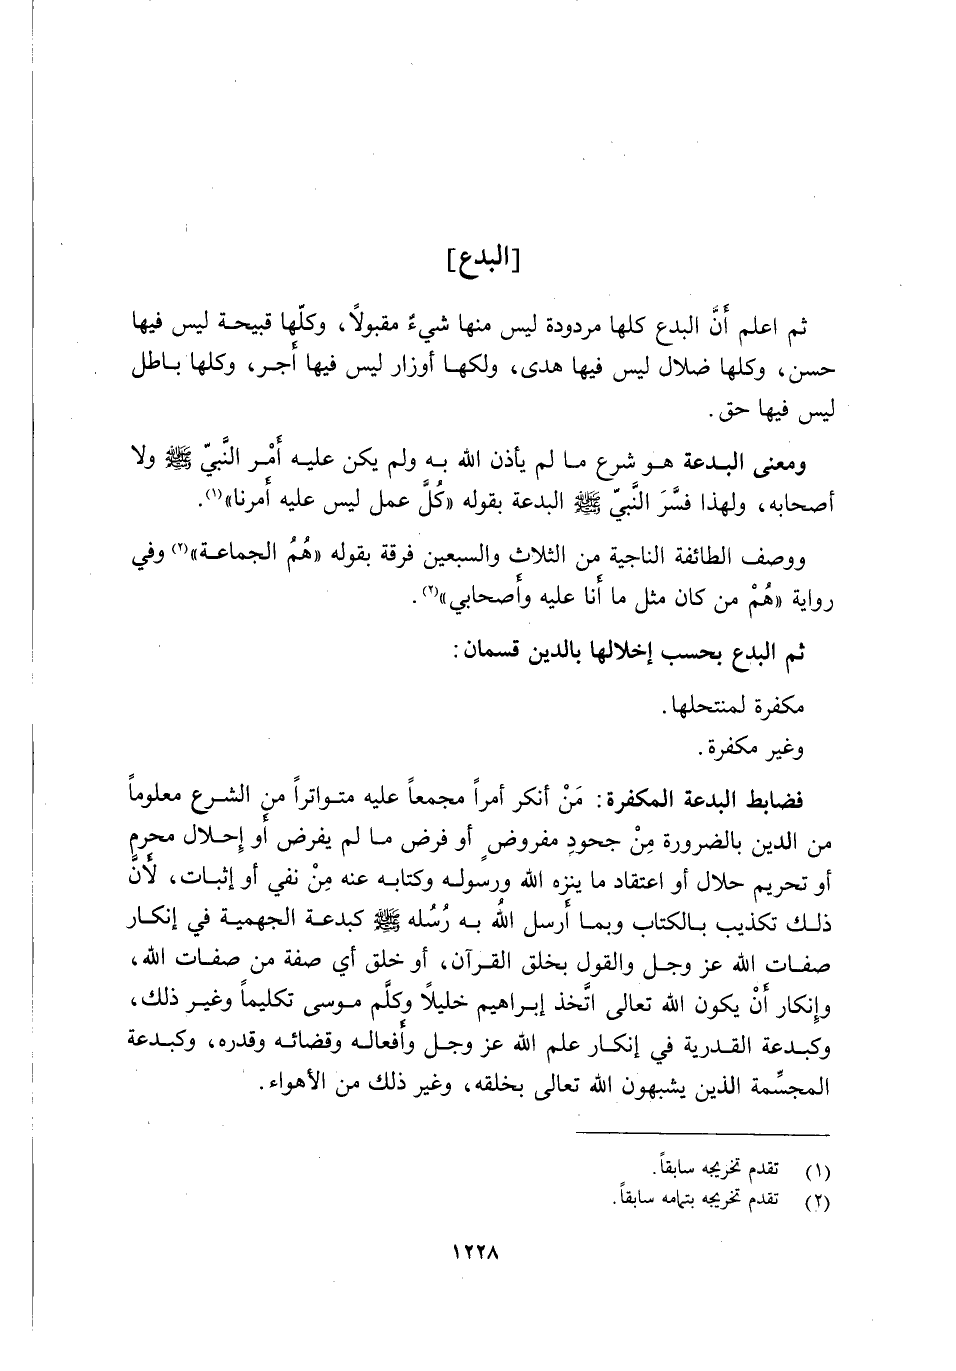 [البدع]
ثم اعلم أَنَّ البدع كلها مردودة ليس منها شيءٌ مقبولاً، وكلّها قبيحة ليس فيها
حسن، وكلها ضلال ليس فيها هدى، ولكها أوزار ليس فيها أَجر، وكلها باطل
ليس فيها حق.
ومعنى البدعة هو شرع ما لم يأذن الله به ولم يكن عليه أَمْر النَّبيّ ﷺ ولا
أصحابه، ولهذا فسَّرَ النَّبيّ ﷺ البدعة بقوله «كُلَّ عمل ليس عليه أَمرنا»(١).
ووصف الطائفة الناجية من الثلاث والسبعين فرقة بقوله «هُمُ الجماعة»(٢) وفي
رواية «هُمْ من كان مثل ما أَنا عليه وأَصحابي»(٢).
ثم البدع بحسب إخلالها بالدين قسمان:
مكفرة لمنتحلها.
وغير مكفرة.
فضابط البدعة المكفرة: مَنْ أنكر أمراً مجمعاً عليه متواتراً من الشرع معلوماً
من الدين بالضرورة مِنْ جحودِ مفروضٍ أو فرض ما لم يفرض أَو إِحلال محرم
أو تحريم حلال أو اعتقاد ما ينزه الله ورسوله وكتابه عنه مِنْ نفي أو إثبات، لأَنَّ
ذلك تكذيب بالكتاب وبما أَرسل اللهُ به رُسُله ﷺ كبدعة الجهمية في إنكار
صفات الله عز وجل والقول بخلق القرآن، أو خلق أي صفة من صفات الله،
وإِنكار أَنْ يكون الله تعالى اتَّخذ إبراهيم خليلاً وكلَّم موسى تكليماً وغير ذلك،
وكبدعة القدرية في إنكار علم الله عز وجل وأَفعاله وقضائه وقدره، وكبدعة
المجسِّمة الذين يشبهون الله تعالى بخلقه، وغير ذلك من الأهواء.
(١) تقدم تخريجه سابقاً.
(٢) تقدم تخريجه بتمامه سابقاً.
١٢٢٨